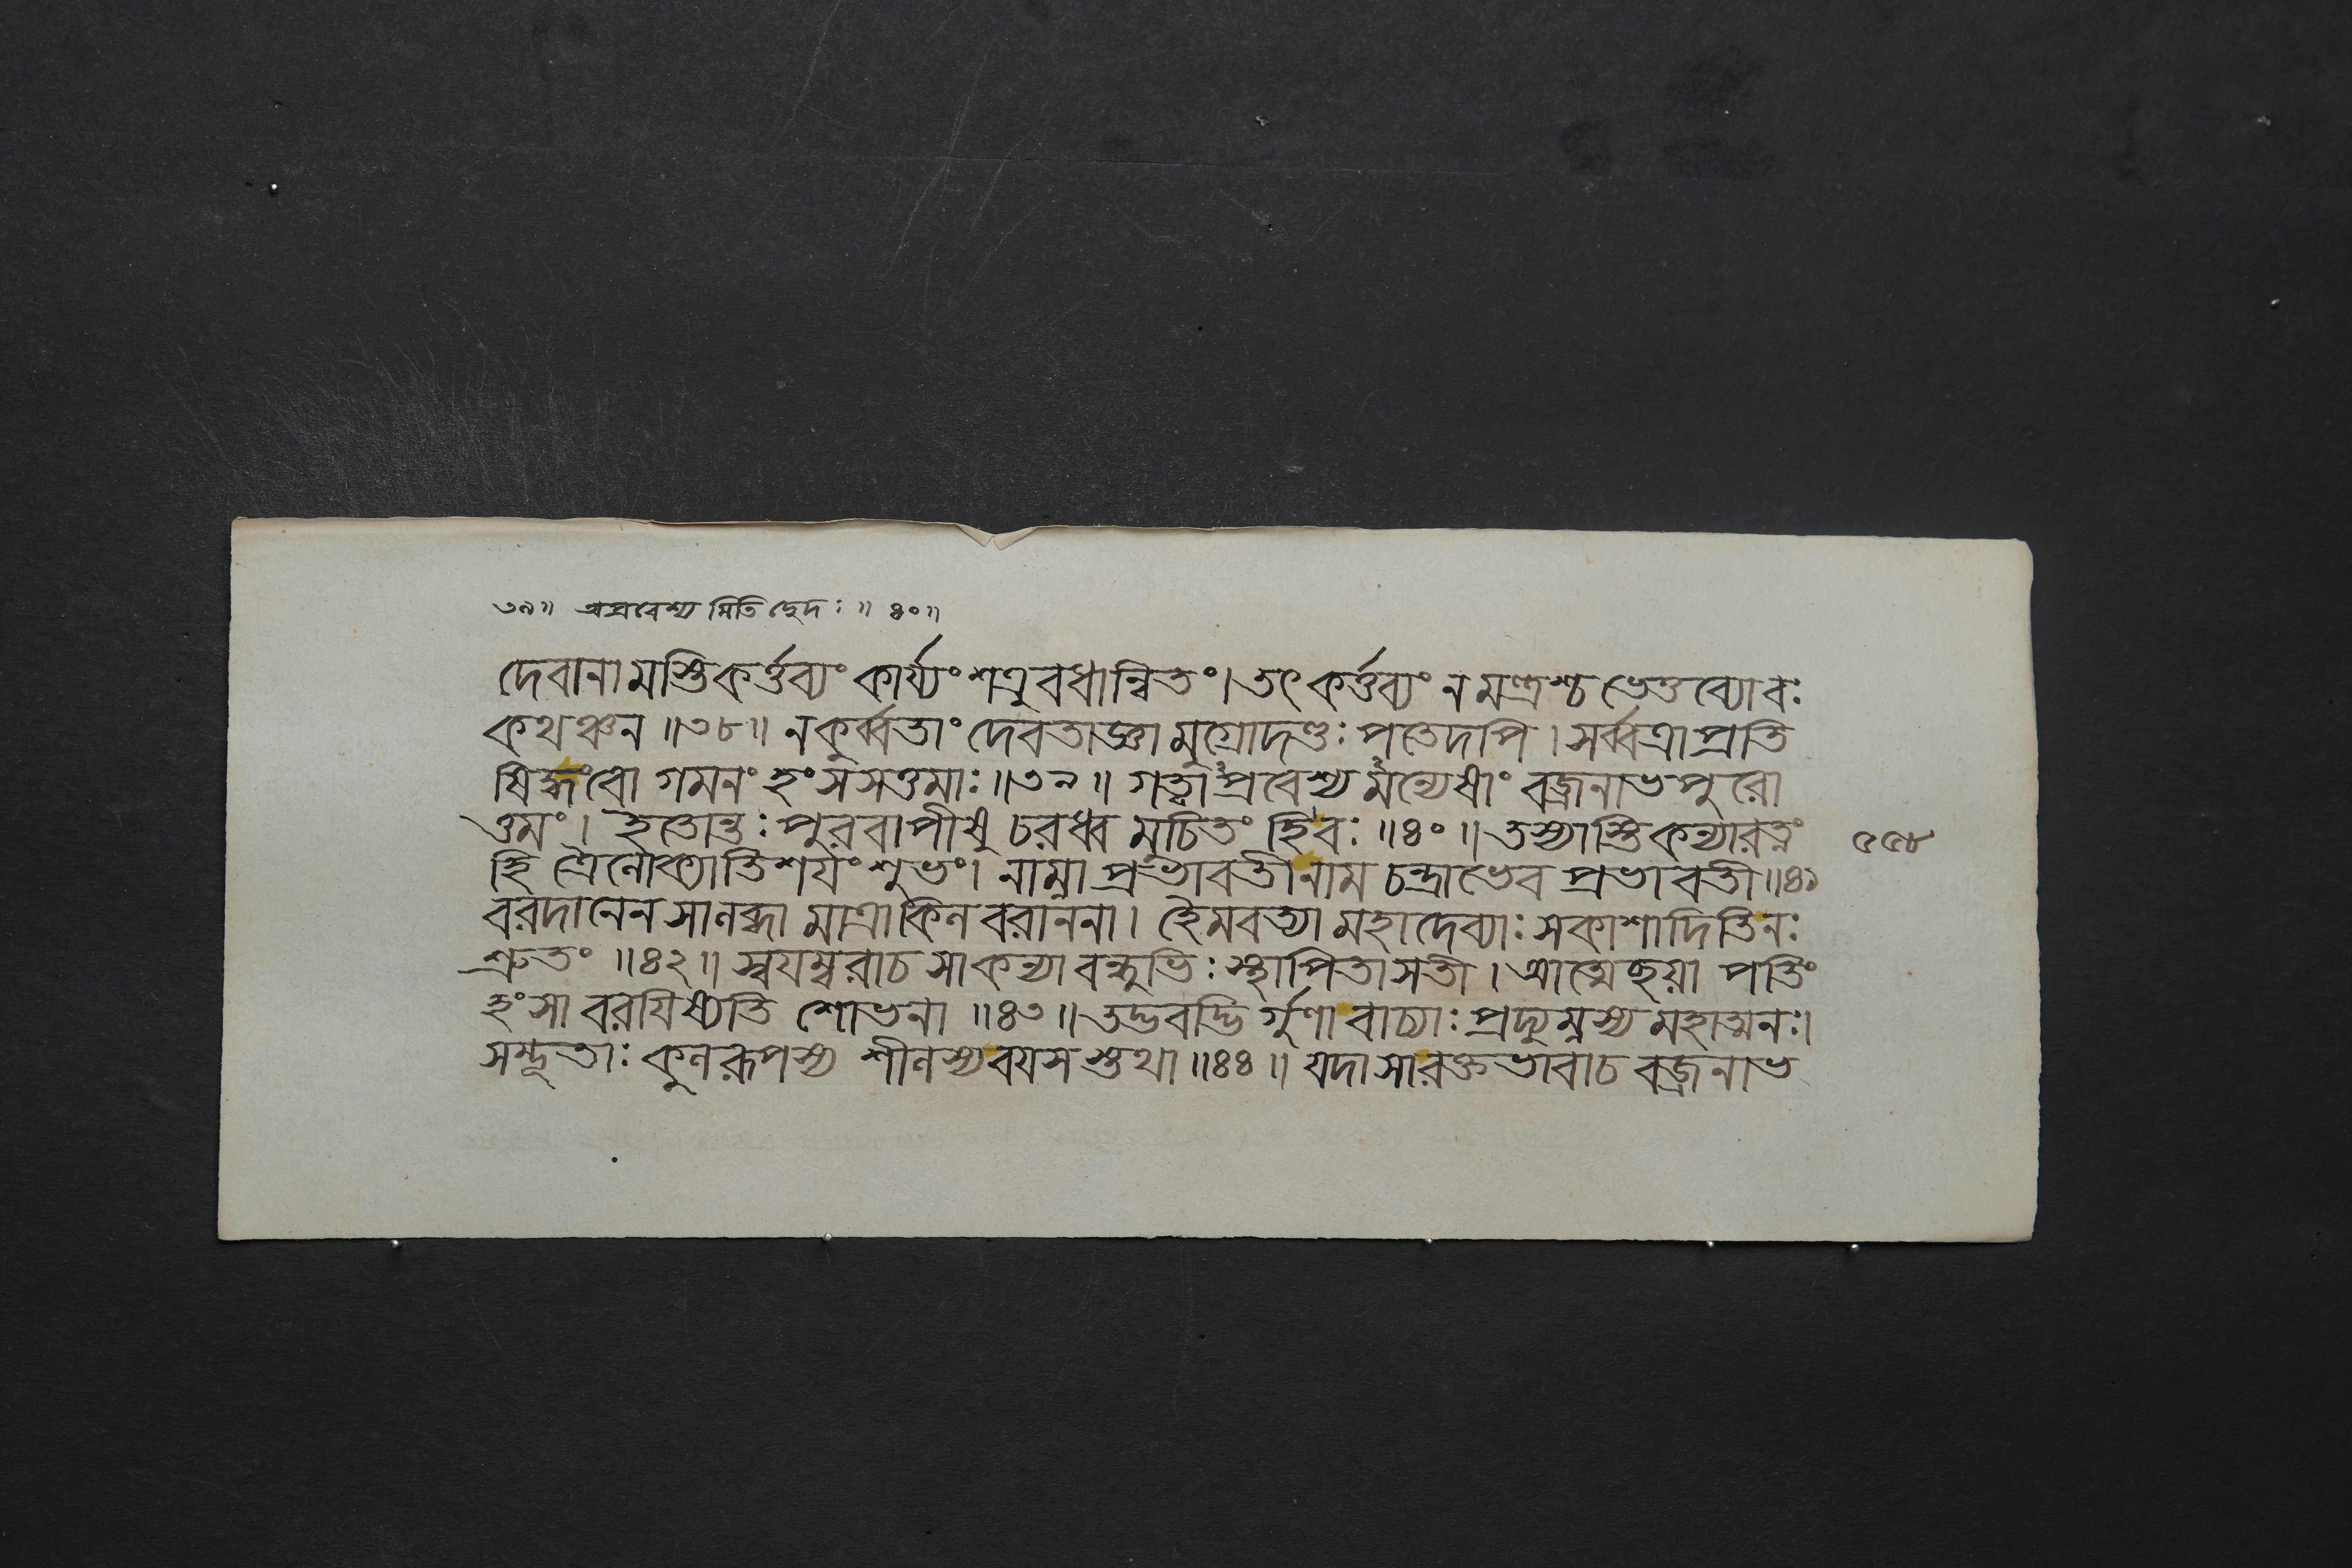 ৩৯॥ অপ্রবেশ্য মিতি ছেদঃ ॥ ৪০॥
দেবানামস্তিকর্ত্তব্যং কার্য্যং শত্রুবধান্বিতং। তৎ কর্ত্তব্যং ন মন্ত্রশ্চ ভেত্তব্যোবঃ
কথঞ্চন ॥৩৮॥ নকুর্ব্বতাং দেবতাজ্ঞা মুগ্রোদণ্ডঃ পতেদপি। সর্ব্বত্রাপ্রতি
ষিদ্ধংবো গমনং হংসসত্তমাঃ ॥৩৯॥ গত্বাপ্রবেশ্য মন্যেষাং বজ্রনাভপুরো
ত্তমং। ইতোন্তঃ পুরবাপীষু চরধ্ব মুচিতং হিবঃ ॥৪০॥ তস্যাস্তিকন্যারত্নং
হি ত্রৈলোক্যাতিশয়ং শুভং। নাম্না প্রভাবতীনাম চন্দ্রাভেব প্রভাবতী ॥৪১
বরদানেন সালব্ধা মাত্রাকিল বরাননা। হৈমবত্যা মহাদেব্যাঃ সকাশাদিতিনঃ
শ্রুতং ॥৪২॥ স্বযম্বরাচ সাকন্যা বন্ধুভিঃ স্থাপিতাসতী। আত্মেছয়া পতিং
হংসা বরযিষ্যতি শোভনা ॥৪৩॥ তদ্ভবদ্ভি র্গুণা বাচ্যাঃ প্রদ্যুম্নস্য মহাত্মনঃ।
সদ্ভূতাঃ কুলরূপস্য শীলস্যবযস স্তথা ॥৪৪॥ যদা সারক্তভাবাচ বজ্রনাভ
৫৫৮